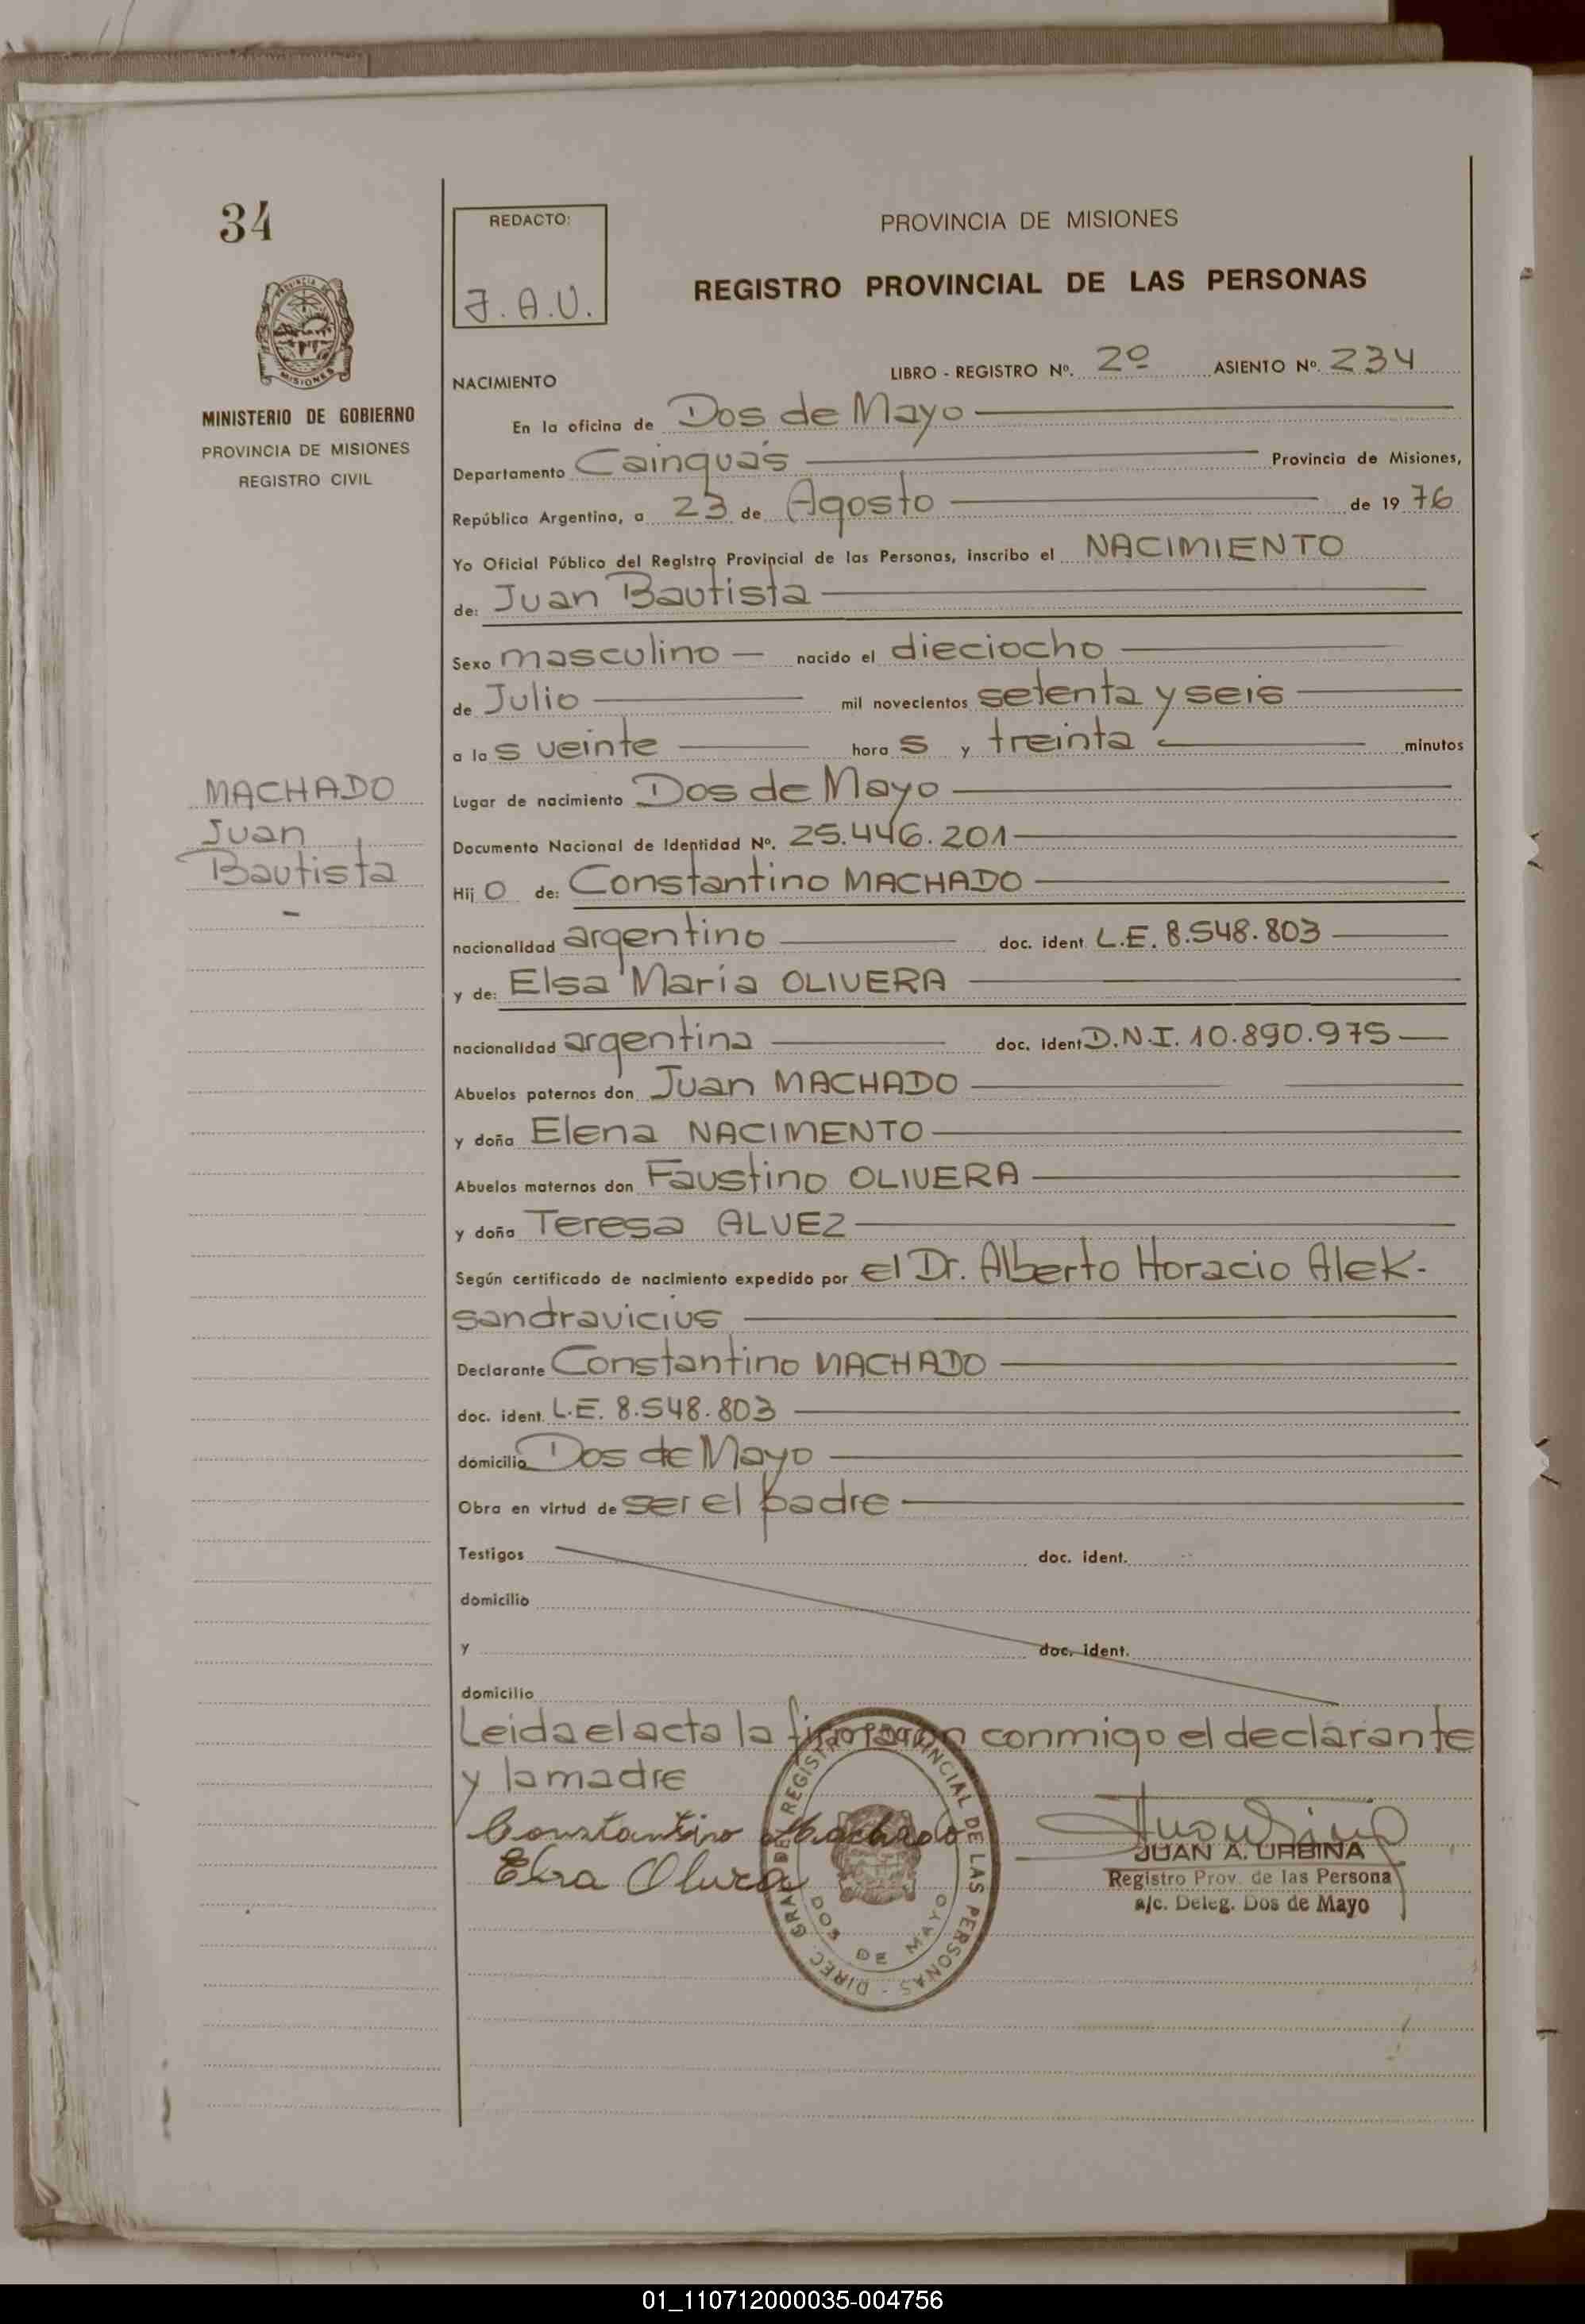 34
REDACTO:
J.A.U.
PROVINCIA DE MISIONES
REGISTRO PROVINCIAL DE LAS PERSONAS
PROVINCIA DE
MISIONES
MINISTERIO DE GOBIERNO
PROVINCIA DE MISIONES
REGISTRO CIVIL
NACIMIENTO LIBRO - REGISTRO Nº. 2º ASIENTO Nº. 234
En la oficina de Dos de Mayo
Departamento Cainguás Provincia de Misiones,
República Argentina, a 23 de Agosto de 1976
Yo Oficial Público del Registro Provincial de las Personas, inscribo el NACIMIENTO
de: Juan Bautista
Sexo masculino nacido el dieciocho
de Julio mil novecientos setenta y seis
a las veinte horas y treinta minutos
MACHADO
Juan
Bautista
-
Lugar de nacimiento Dos de Mayo
Documento Nacional de Identidad Nº. 25.446.201
Hijo de: Constantino MACHADO
nacionalidad argentino doc. ident. L.E. 8.548.803
y de: Elsa Maria OLIVERA
nacionalidad argentina doc. ident D.N.I. 10.890.975
Abuelos paternos don Juan MACHADO
y doña Elena NACIMENTO
Abuelos maternos don Faustino OLIVERA
y doña Teresa ALVEZ
Según certificado de nacimiento expedido por el Dr. Alberto Horacio Alek-
sandravicius
Declarante Constantino MACHADO
doc. ident. L.E. 8.548.803
domicilio Dos de Mayo
Obra en virtud de ser el padre
Testigos doc. ident.
domicilio
y doc. ident.
domicilio
Leida el acta la firmaron conmigo el declarante
y la madre
Constantino Machado
Elsa Olivera
DIREC. GRAL. DEL REGISTRO PROVINCIAL DE LAS PERSONAS -
DOS DE MAYO
JUAN A. URBINA
Registro Prov. de las Persona
a/c. Deleg. Dos de Mayo
01_110712000035-004756